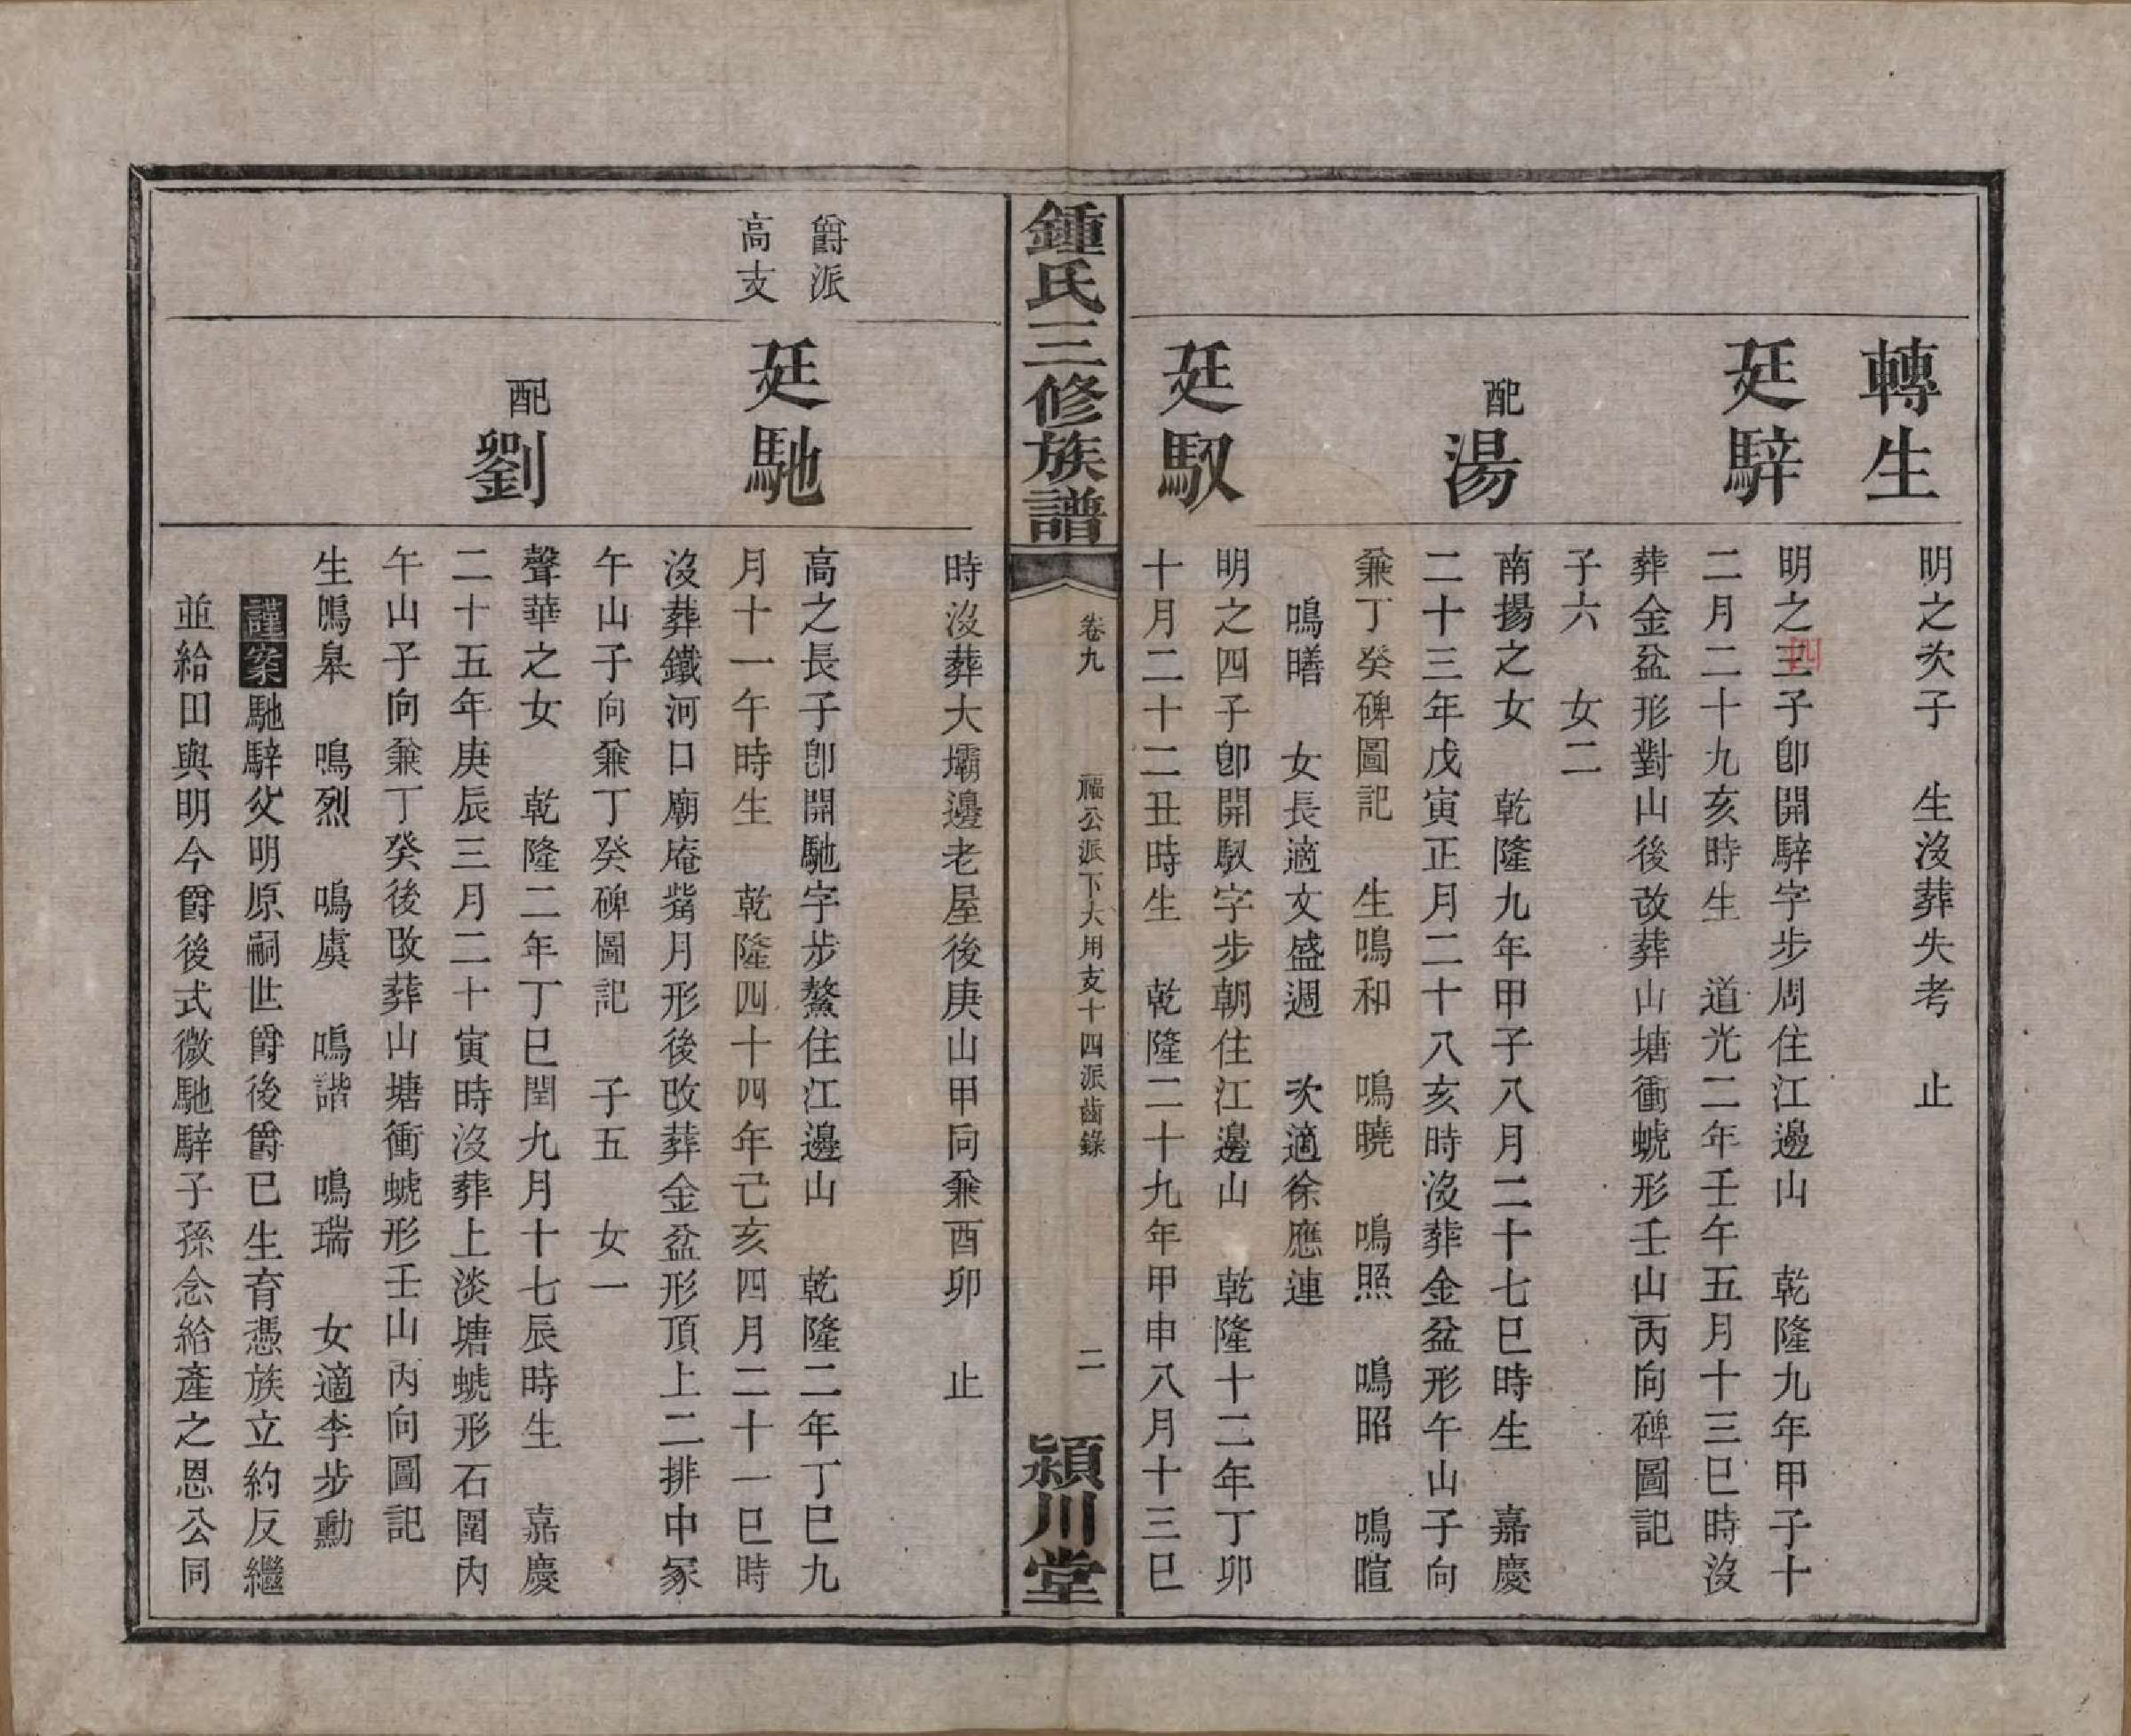 轉生
明之次子　生沒葬失考　止
廷騂
明之三四子卽開騂字步周住江邊山　乾隆九年甲子十
二月二十九亥時生　道光二年壬午五月十三巳時沒
葬金盆形對山後改葬山塘衝螔形壬山丙向碑圖記
子六　女二
配湯
南揚之女　乾隆九年甲子八月二十七巳時生　嘉慶
二十三年戊寅正月二十八亥時沒葬金盆形午山子向
兼丁癸碑圖記　生鳴和　鳴曉　鳴照　鳴昭　鳴暄
鳴㬜　女長適文盛週　次適徐應連
廷馭
明之四子卽開馭字步朝住江邊山　乾隆十二年丁卯
十月二十二丑時生　乾隆二十九年甲申八月十三巳
鍾氏三修族譜
卷九　福公派下大用支十四派齒錄　二
潁川堂
時沒葬大壩邊老屋後庚山甲向兼酉卯　止
爵派
高支
廷馳
高之長子卽開馳字步鰲住江邊山　乾隆二年丁巳九
月十一午時生　乾隆四十四年己亥四月二十一巳時
沒葬鐵河口廟庵觜月形後改葬金盆形頂上二排中冢
午山子向兼丁癸碑圖記　子五　女一
配劉
聲華之女　乾隆二年丁巳閏九月十七辰時生　嘉慶
二十五年庚辰三月二十寅時沒葬上淡塘螔形石圍內
午山子向兼丁癸後改葬山塘衝螔形壬山丙向圖記
生鳴皋　鳴烈　鳴虞　鳴諧　鳴瑞　女適李步勳
謹案馳騂父明原嗣世爵後爵已生育憑族立約反繼
並給田與明今爵後式微馳騂子孫念給產之恩公同